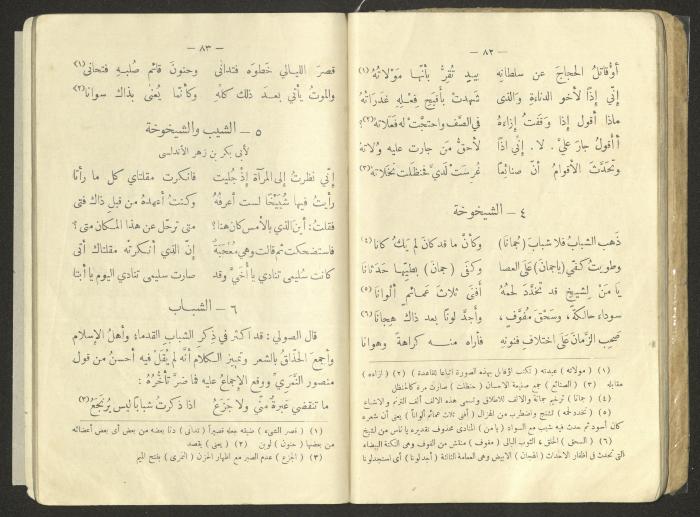 — ٨٢ —
أؤقاتلُ الحجاجَ عن سلطانِهِ بيدٍ تُقِرُّ بأنَّها مَوْلاتُهُ (١)
إنّي إذًا لأخو الدناءَةِ والذى شَهِدتْ بأقبحِ فعلِهِ غَدَرَاتُهُ
ماذا أقول إذا وَقَفتُ إزاءَهُ في الصَّف واحتجَّتْ له فَعَلاته (٢)؟
أأقولُ جارَ عليَّ . لا . إنّي إذًا لأحقُّ مَن جارت عليه وُلاتهُ
وتَحدَّثَ الأقوامُ أنّ صنائعًا غُرسَتْ لديَّ فحنظلت نَخَلاتهُ (٣)
٤ — الشيخوخة
ذَهب الشبابُ فلا شبابَ (جُمانا) وكأنَّ ما قد كانَ لم يَكُ كانا (٤)
وطويتُ كفي (ياجمانَ) على العصا وكفى (جمانَ) بِطيّها حَدَثانا
يَا مَنْ لِشيخٍ قد تخدَّدَ لحمُهُ أَفنى ثلاثَ عَمائمٍ ألوانَا (٥)
سوداءَ حالكةً، وسَحْقَ مُفَوَّفٍ، وأجدَّ لونًا بعد ذاك هِجانَا (٦)
صَحِبَ الزَّمانَ عَلَى اختلافِ فنونِهِ فأراهُ منه كراهةً وهوانا
(١) (مولاته) عبدته (٢) تكتب أؤقاتل بهذه الصورة اتباعا للقاعدة (٢) (ازاءه)
مقابله (٣) (الصنائع) جمع صنيعة الاحسان (حنظلت) صارت مرة كالحنظل
(٤) (جمانا) ترخيم جمانة والالف للاطلاق وتسمى هذه الالف ألف الترنم والاشباع
(٥) (تخدد لحمه) تشنج واضطرب من الهزال (أفنى ثلاث عمائم ألوانا) يعنى أن شعره
كان أسود ثم حدث فيه شيب مع السواد (يا من) المنادى محذوف تقديره يا ناس من لشيخ
(٦) (السحق) الخلق، الثوب البالى (مفوف) منقش من الفوف وهى النكتة البيضاء
التى تحدث في اظفار الاحداث (الهجان) الابيض وهى العمامة الثالثة (أجد لونا) أى استجد لونا
— ٨٣ —
قصرَ الليالي خَطوَه فتدانَى وحنونَ قائم صُلبِهِ فتحانَى (١)
والموتُ يأتي بعدَ ذلك كلّهِ وكأنّما يُعْنَى بذاك سوانا (٢)
٥ — الشيب والشيخوخة
لأبى بكر بن زهر الأندلسى
إنّي نظرتُ إلى المرآة إذ جُليت فأنكرت مقلتاي كل ما رأتا
رأيتُ فيها شُيَيْخًا لست أعرفُهُ وكنتُ أعهدهُ من قبلِ ذاك فتى
فقلتُ: أينَ الذي بالأمس كان هنا؟ متى ترحّل عن هذا المكان متى؟
فاستضحكت ثم قالت وهي مُعجَبَةٌ إنّ الذي أنكرتْه مقلتاك أتَى
كانت سُليمى تنادي يا أُخَيَّ وقد صارت سليمى تنادي اليوم يا أبتا
٦ — الشباب
قال الصولي: قد أكثر في ذِكرِ الشبابِ القدماء، وأهلُ الإسلام
وأجمعَ الحذّاقُ بالشعر وتمييز الكلامِ أنّه لم يُقَلْ فيه أحسنُ من قول
منصور النَّمَرِيّ ووقع الإجماعُ عليه فما ضرَّ تأخُّرُهُ:
ما تنقضي عَبرةٌ منّي ولا جَزَعُ إذا ذكرتُ شبابًا ليس يُرتَجَعُ (٣)
(١) (قصر الشىء) ضيقه جعله قصيرا (تدانى) دنا بعضه من بعض أى بعض أعضائه
من بعضها (حنون) لوين (٢) (يعنى) يقصد
(٣) (الجزع) عدم الصبر مع اظهار الحزن (النمرى) بفتح الميم